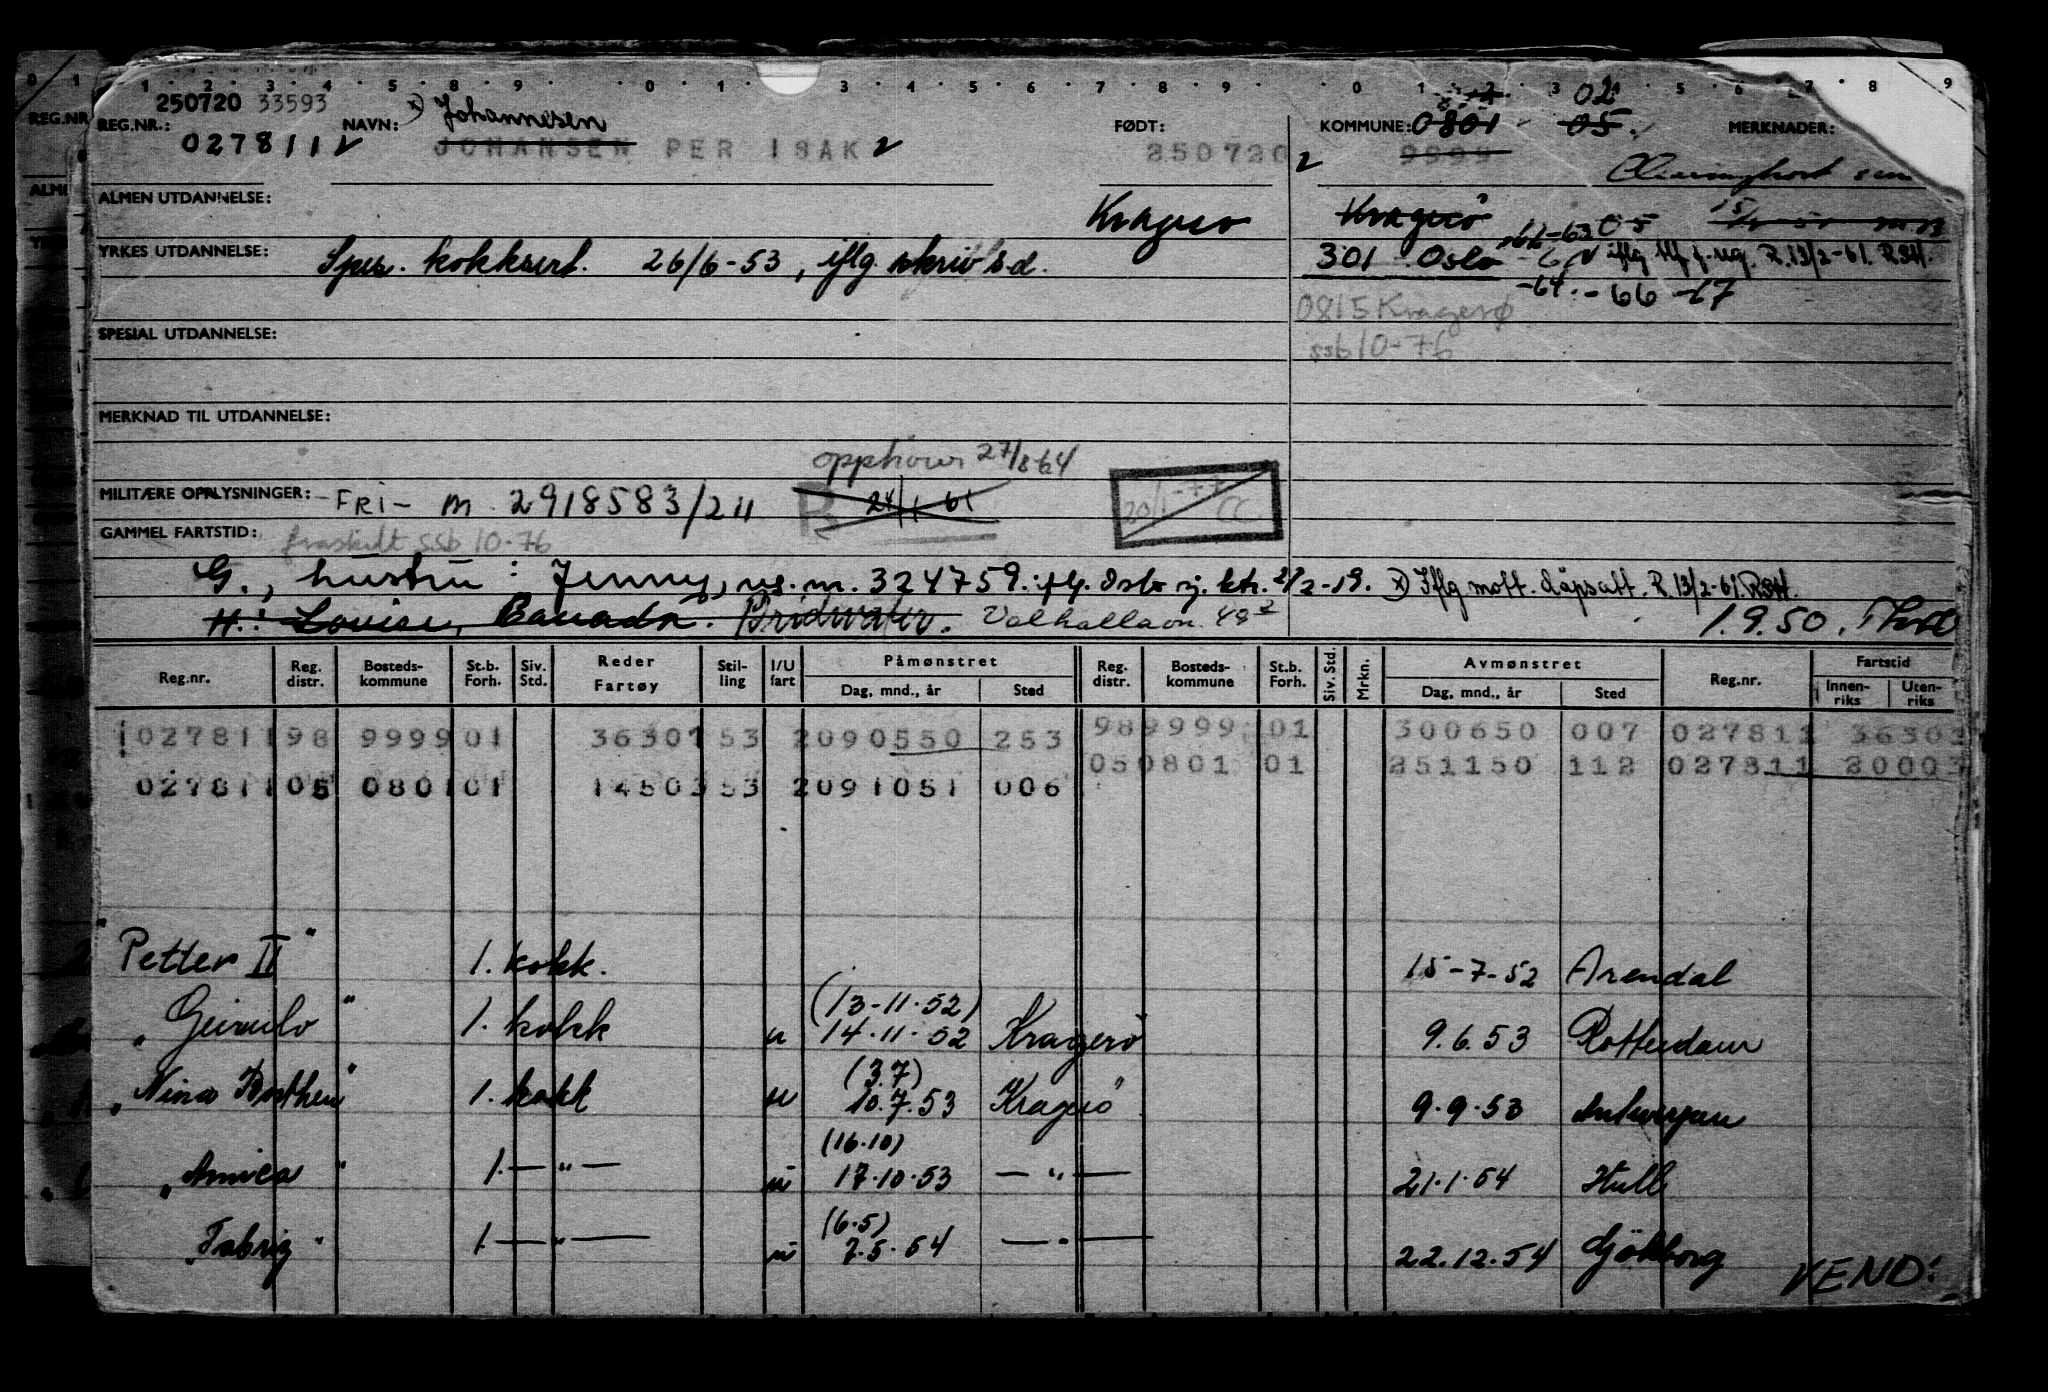 250720 33593
REG.NR.: 027811
NAVN: x) Johannesen
JOHANSEN PER ISAK
FØDT: 250720
KOMMUNE: 0801 05. 02
9999
MERKNADER:
ALMEN UTDANNELSE:
Kragerø
Kragerö
YRKES UTDANNELSE: Spes. kokksert. 26/6-53, iflg. skriv s.d.
301 Oslo iflg tlf f. reg. R. 13/2-61. RSH.
-64. -66 -67
0815 Kragerø
ssb 10-76
SPESIAL UTDANNELSE:
MERKNAD TIL UTDANNELSE:
opphører 27/8 64
MILITÆRE OPPLYSNINGER: -FRI- M. 2918583/211
R 24/1 61
20/1-77 CC
GAMMEL FARTSTID: fraskilt ssb 10-76
G., hustru: Jenny, m. 324759. iflg. Oslo sj. ktr. 2/2-19. x) Iflg mott. dåpsatt. R. 13/2-61. RSH.
H.: Louise, Canada. Bridwater. Valhallavn. 48
1.9.50.
Reg.nr. Reg. distr. Bosteds-kommune St.b. Forh. Siv. Std. Reder Fartøy Stil-ling I/U fart Påmønstret Dag, mnd., år Sted Reg. distr. Bosteds-kommune St.b. Forh. Siv. Std. Mrkn. Avmønstret Dag, mnd., år Sted Reg.nr. Fartstid Innen-riks Uten-riks
027811 98 9999 01 36301 53 2 090550 253 98 9999 01 300650 007 027811 36301
027811 05 0801 01 14503 53 2 091051 006 05 0801 01 251150 112 027811 20003
"Petter II" 1. kokk. 15-7-52 Arendal
(13-11-52)
"Geirulv" 1. kokk u 14.11.52 Kragerö 9.6.53 Rotterdam
(3.7)
"Nina Borthen" 1. kokk u 10.7.53 Kragerö 9.9.53 Antwerpen
(16.10)
"Annica" 1. — " — u 17.10.53 — " — 21.1.54 Hull
(6.5)
"Fabrig" 1. — " — u 7.5.54 — " — 22.12.54 Gjøteborg
VEND!